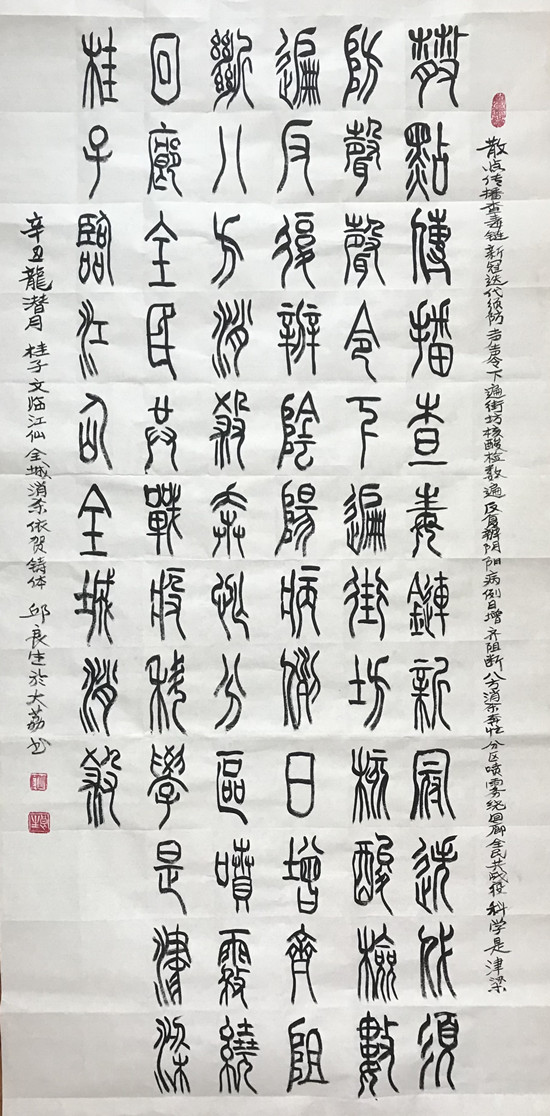 散点传播查毒链新冠迭代须防声声令下遍街坊核酸检数遍反复辨阴阳病例日增齐阻断八方消杀奔忙分区喷雾绕回廊全民共战役科学是津梁
散點傳播查毒鏈新冠迭代須
防聲聲令下遍街坊核酸檢數
遍反復辨陰陽病例日增齊阻
斷八方消殺奔忙分區噴霧繞
回廊全民共戰役科學是津梁
桂子臨江仙全城消殺
辛丑龍潜月 桂子文临江仙全城消杀依贺铸体 邱良生於大荔书